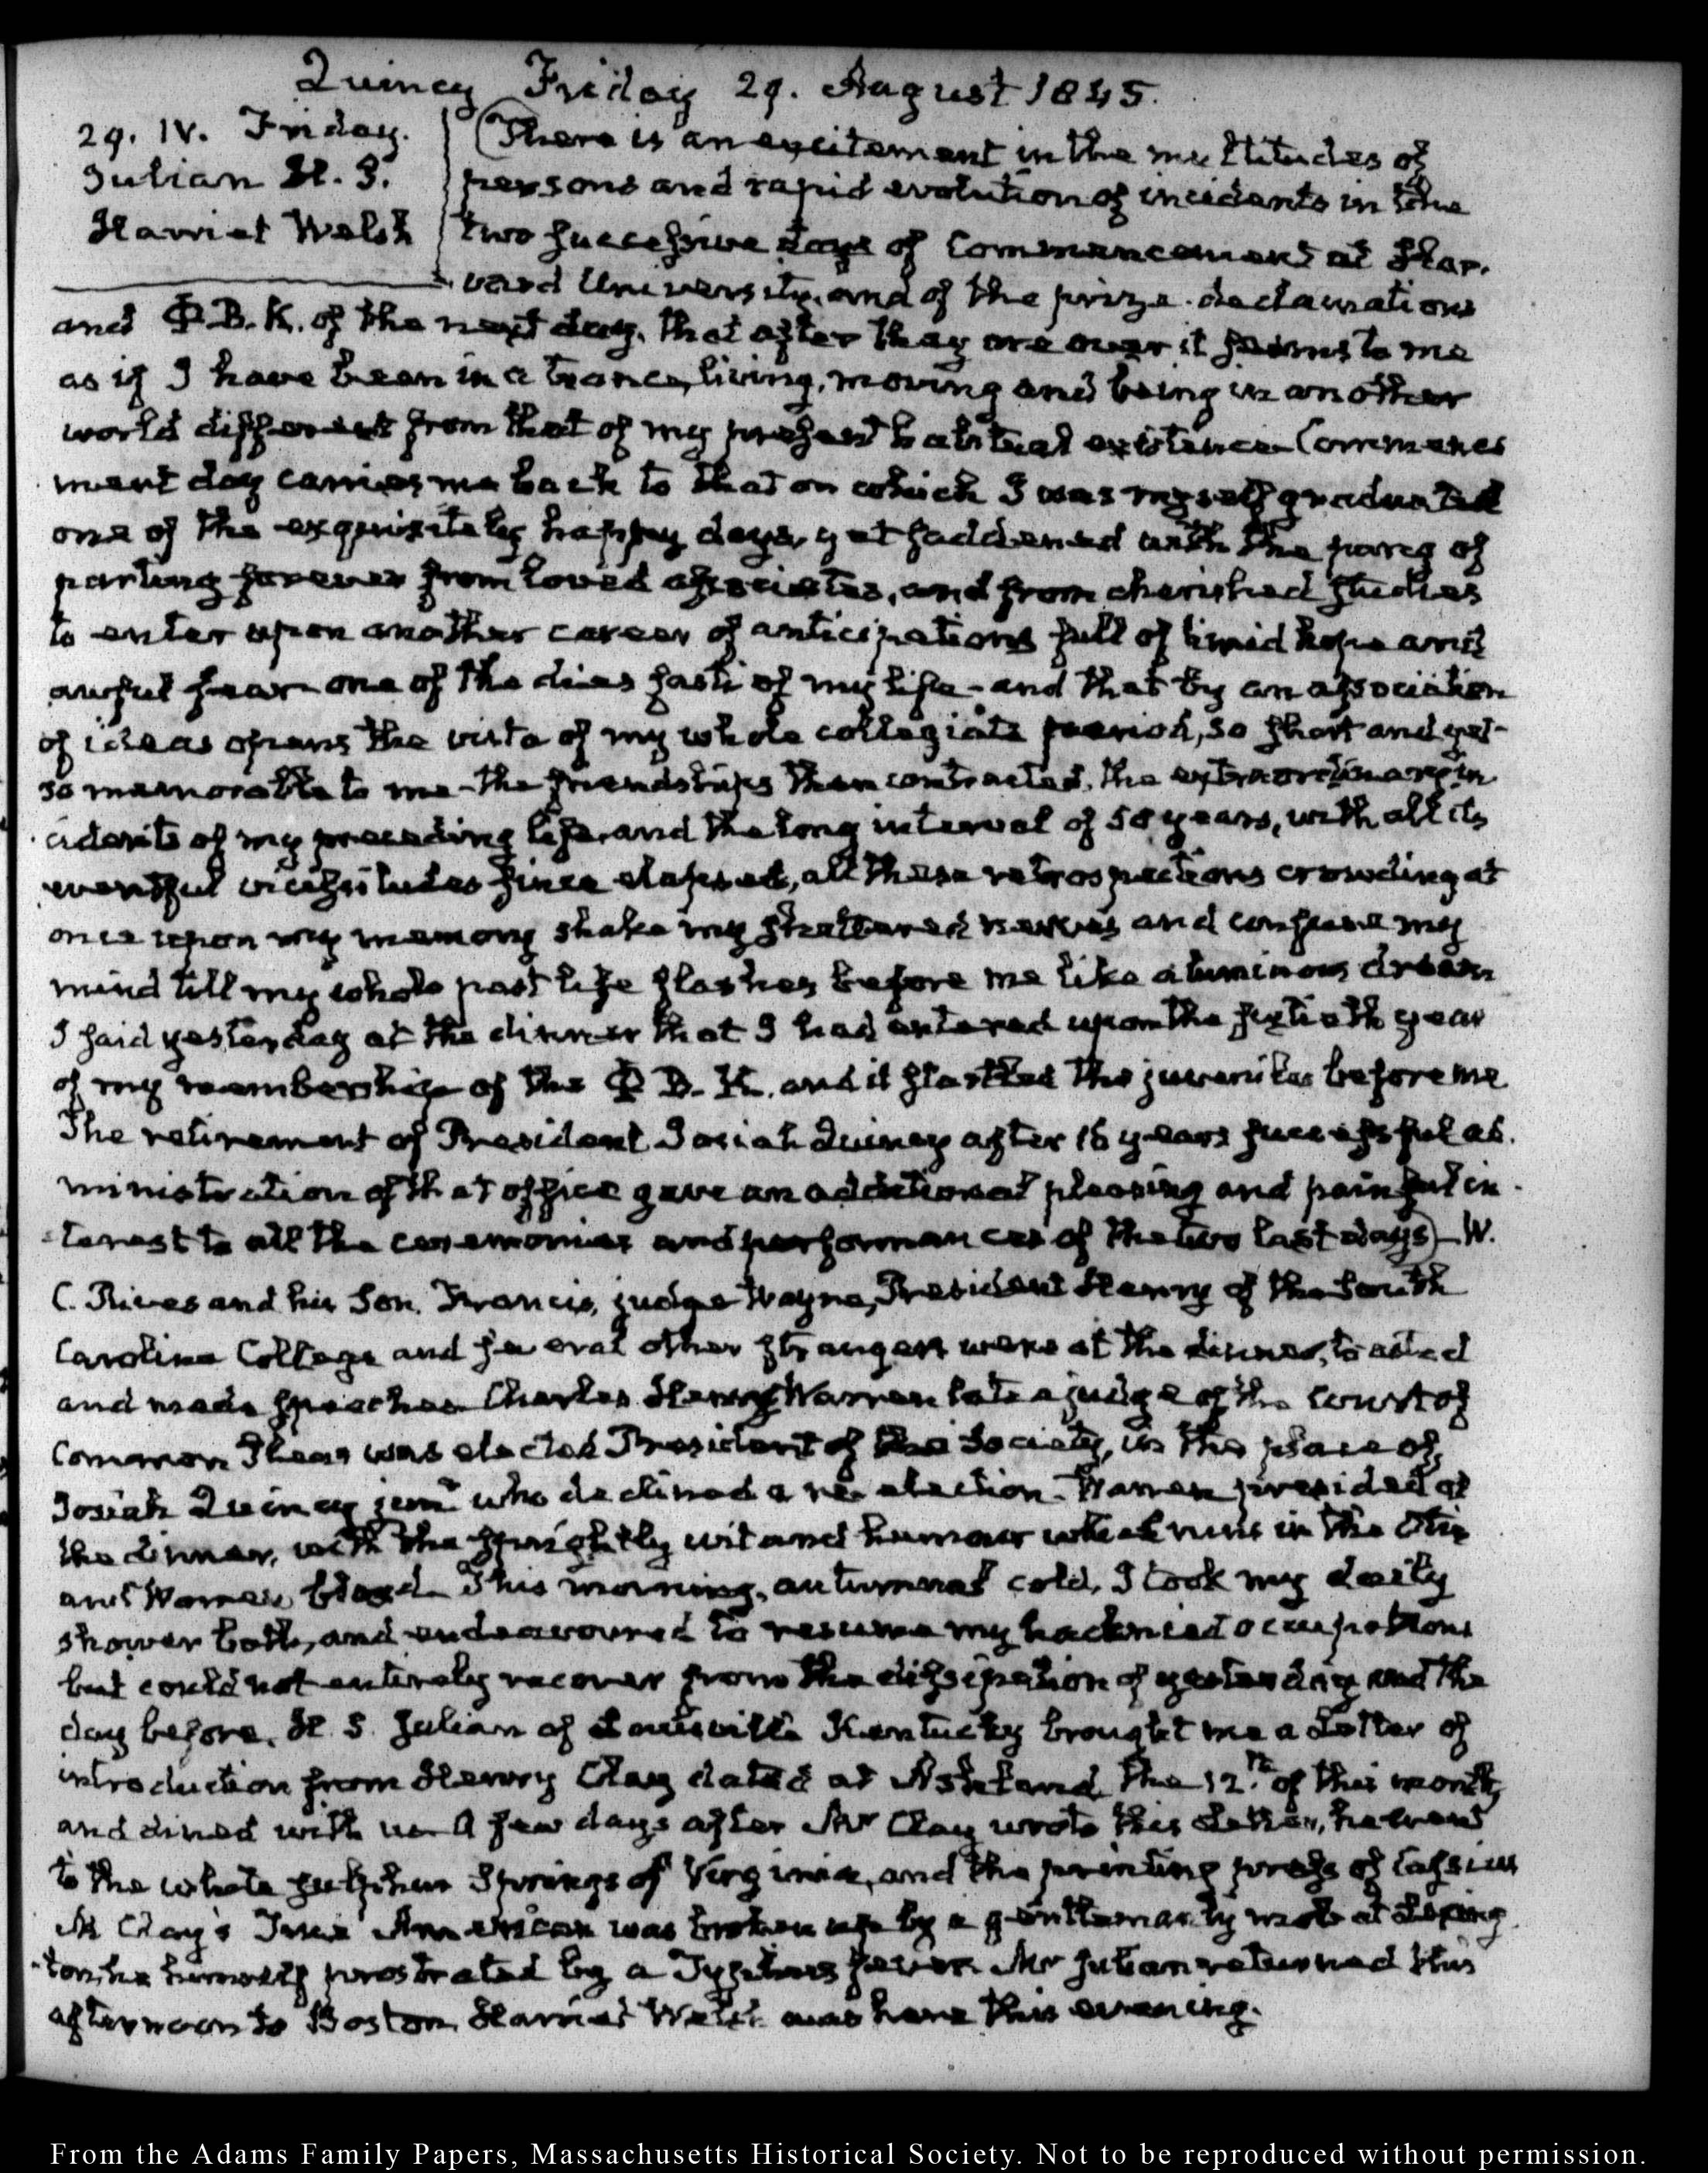 Quincy Friday 29. August 1845.
29. IV. Friday.
Julian H. S.
Harriet Welsh
(There is an excitement in the multitudes of
persons and rapid evolution of incidents in the
two successive days of Commencement at Har-
vard University, and of the prize declamations
and Φ.B.K. of the next day, that after they are over it seems to me
as if I have been in a trance, living, moving and being in another
world different from that of my present habitual existence. Commence
ment day carries me back to that on which I was myself graduated
one of the exquisitely happy days, yet saddened with the pang of
parting forever from loved associates, and from cherished studies
to enter upon another career of anticipations full of timid hope and
awful fear one of the dies fasti of my life - and that by an association
of ideas opens the vista of my whole collegiate period, so short and yet
so memorable to me - the friendships then contracted, the extraordinary in
cidents of my preceding life, and the long interval of 58 years, with all its
eventful vicissitudes since elapsed, all these retrospections crowding at
once upon my memory shake my shattered nerves and confuse my
mind till my whole past life flashes before me like a luminous dream
I said yesterday at the dinner that I had entered upon the sixtieth year
of my membership of the Φ B. K. and it startled the juveniles before me
The retirement of President Josiah Quincy after 16 years successful ad-
ministration of that office gave an additional pleasing and painful in-
terest to all the ceremonies and performances of the two last days) - W.
C. Rives and his Son, Francis, judge Wayne, President Henry of the South
Carolina College and several other strangers were at the dinner, toasted
and made speeches. Charles Henry Warren late a judge of the Court of
Common Pleas was elected President of the Society, in the place of
Josiah Quincy junr. who declined a re-election. Warren presided at
the dinner, with the sprightly wit and humour which runs in the Otis
and Warren blood. This morning, autumnal cold, I took my daily
shower bath, and endeavoured to resume my hacknied occupations
but could not entirely recover from the dissipation of yesterday and the
day before. H. S. Julian of Louisville Kentucky brought me a Letter of
introduction from Henry Clay dated at Ashland the 12th of this month,
and dined with us. A few days after Mr Clay wrote this Letter, he went
to the white sulphur Springs of Virginia, and the printing press of Cassius
M Clay's True American was broken up by a gentlemanly mob at Lexing-
ton, he himself prostrated by a Typhus fever. Mr Julian returned this
afternoon to Boston. Harriet Welsh was here this evening.
From the Adams Family Papers, Massachusetts Historical Society. Not to be reproduced without permission.